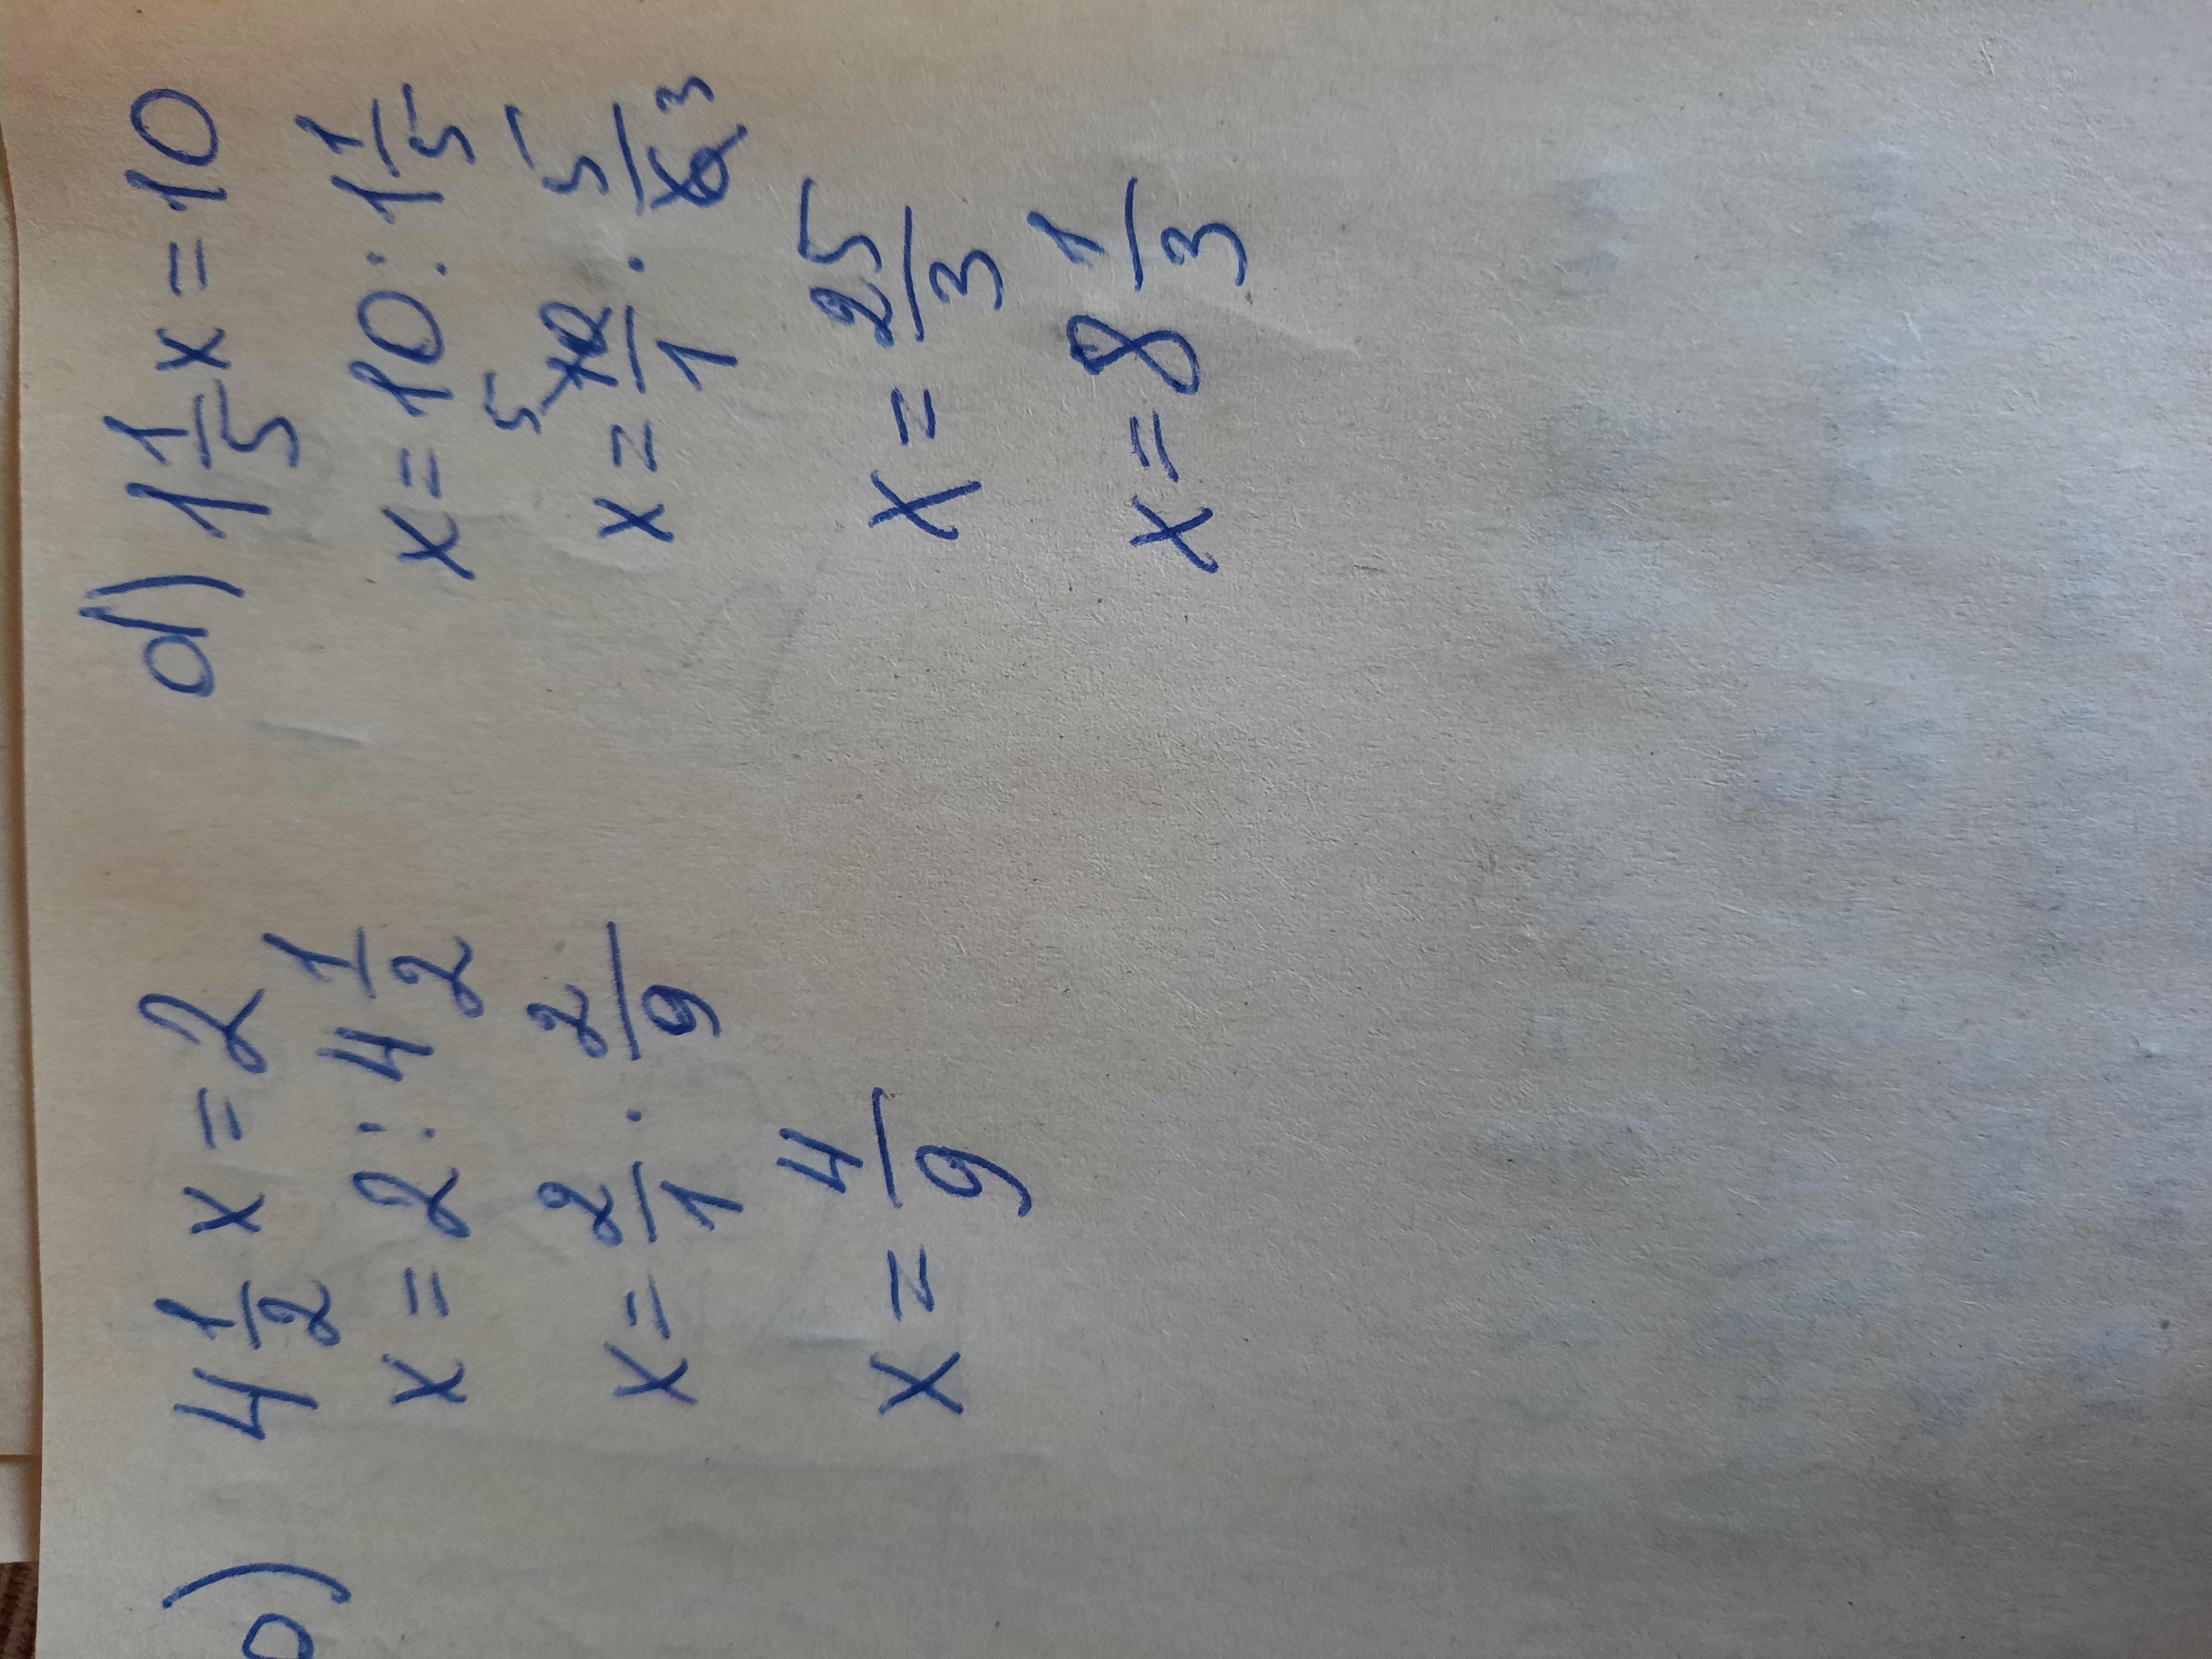 b) 4 1/2 x = 2
x = 2 : 4 1/2
x = 2/1 · 2/9
x = 4/9
d) 1 1/5 x = 10
x = 10 : 1 1/5
x = 5 10/1 · 5/6 3
x = 25/3
x = 8 1/3